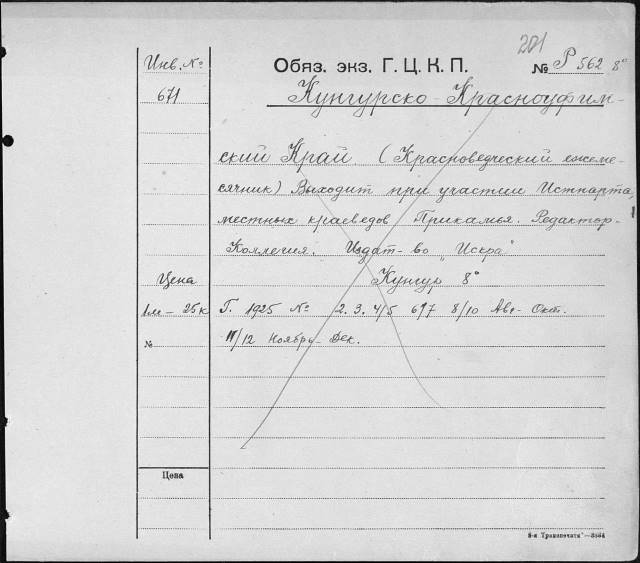 201
Инв. №
Обяз. экз. Г. Ц. К. П. № Р 562 8°
671
Кунгурско-Красноуфим-
ский Край (Краеведческий ежеме-
сячник) Выходит при участии Истпарта,
местных краеведов Прикамья. Редактор-
Коллегия. Издат-во „Искра"
Цена
Кунгур 8°
1 м — 25 к
Г. 1925 № 2. 3. 4/5 6/7 8/10 Авг- Окт.
№
11/12 Ноябрь- Дек.
Цена
8-я Транспечати"—3584